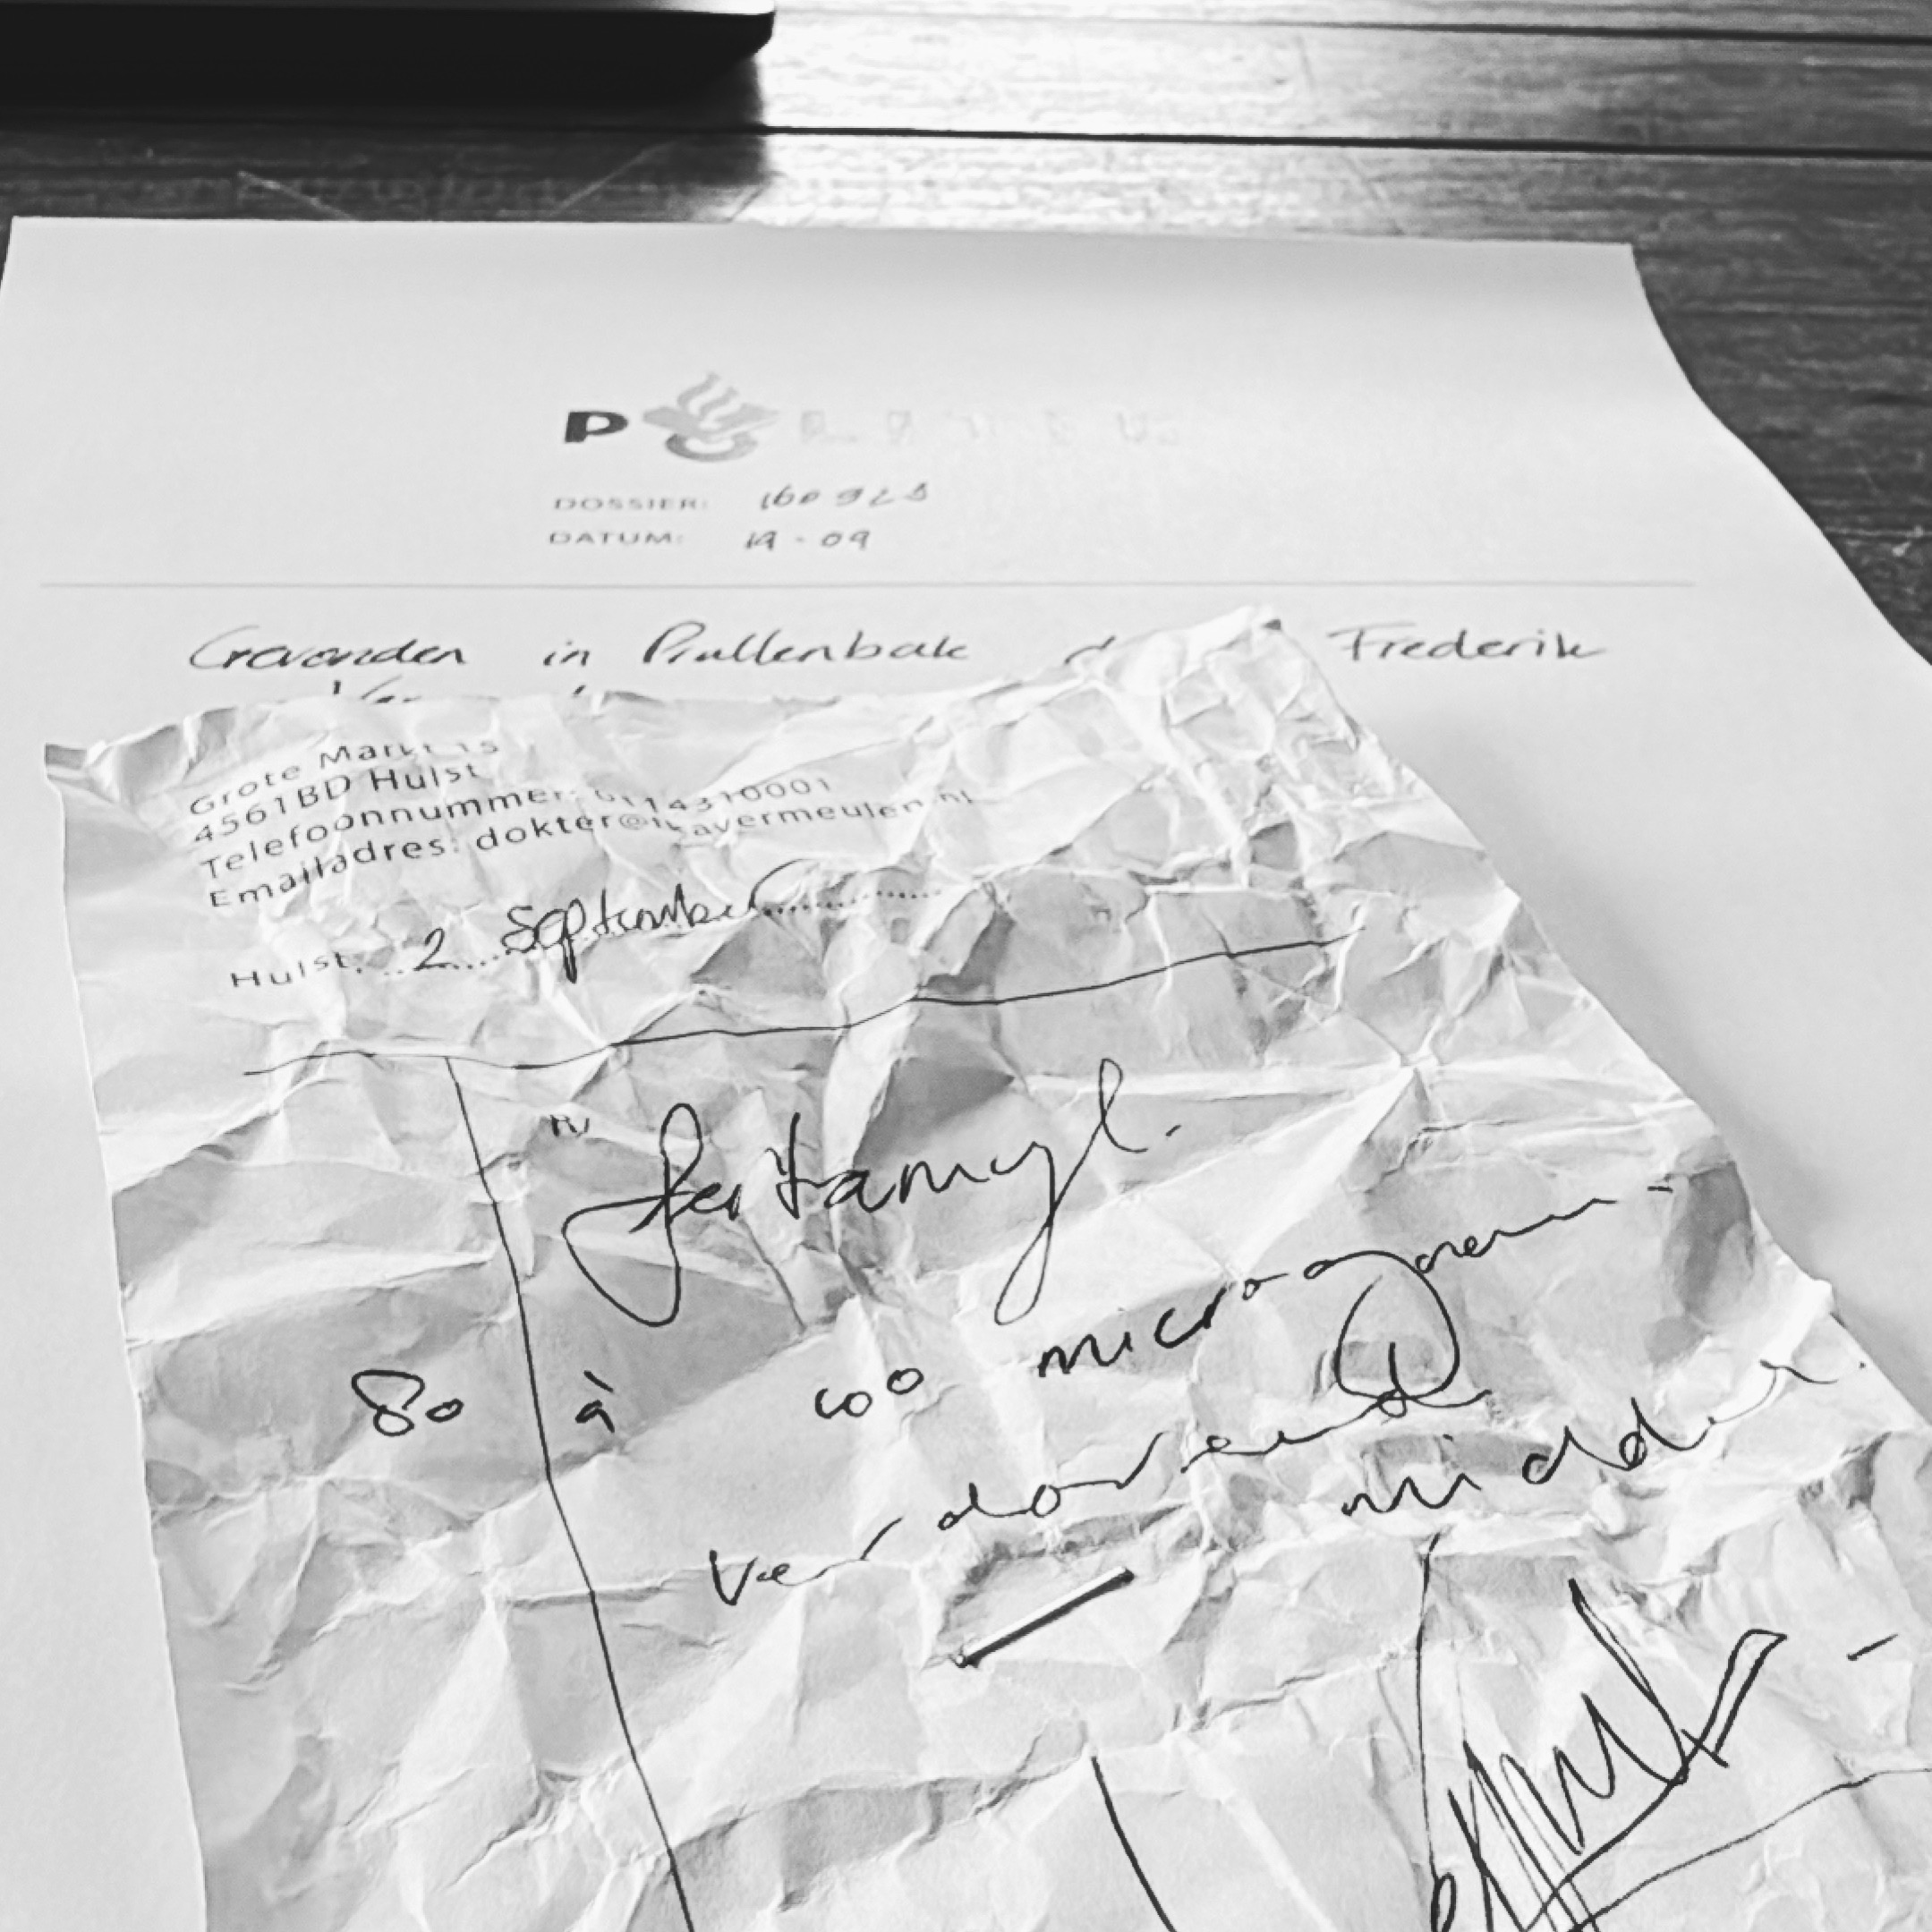 POLITIE
DOSSIER: 160928
DATUM: 19-09
Gevonden in Prullenbak Frederik
Grote Markt 15
4561BD Hulst
Telefoonnummer: 0114310001
Emailadres: dokter@
Hulst, 2 September
R/
fentanyl.
80 à 100 microgram -
verdovend
middel.